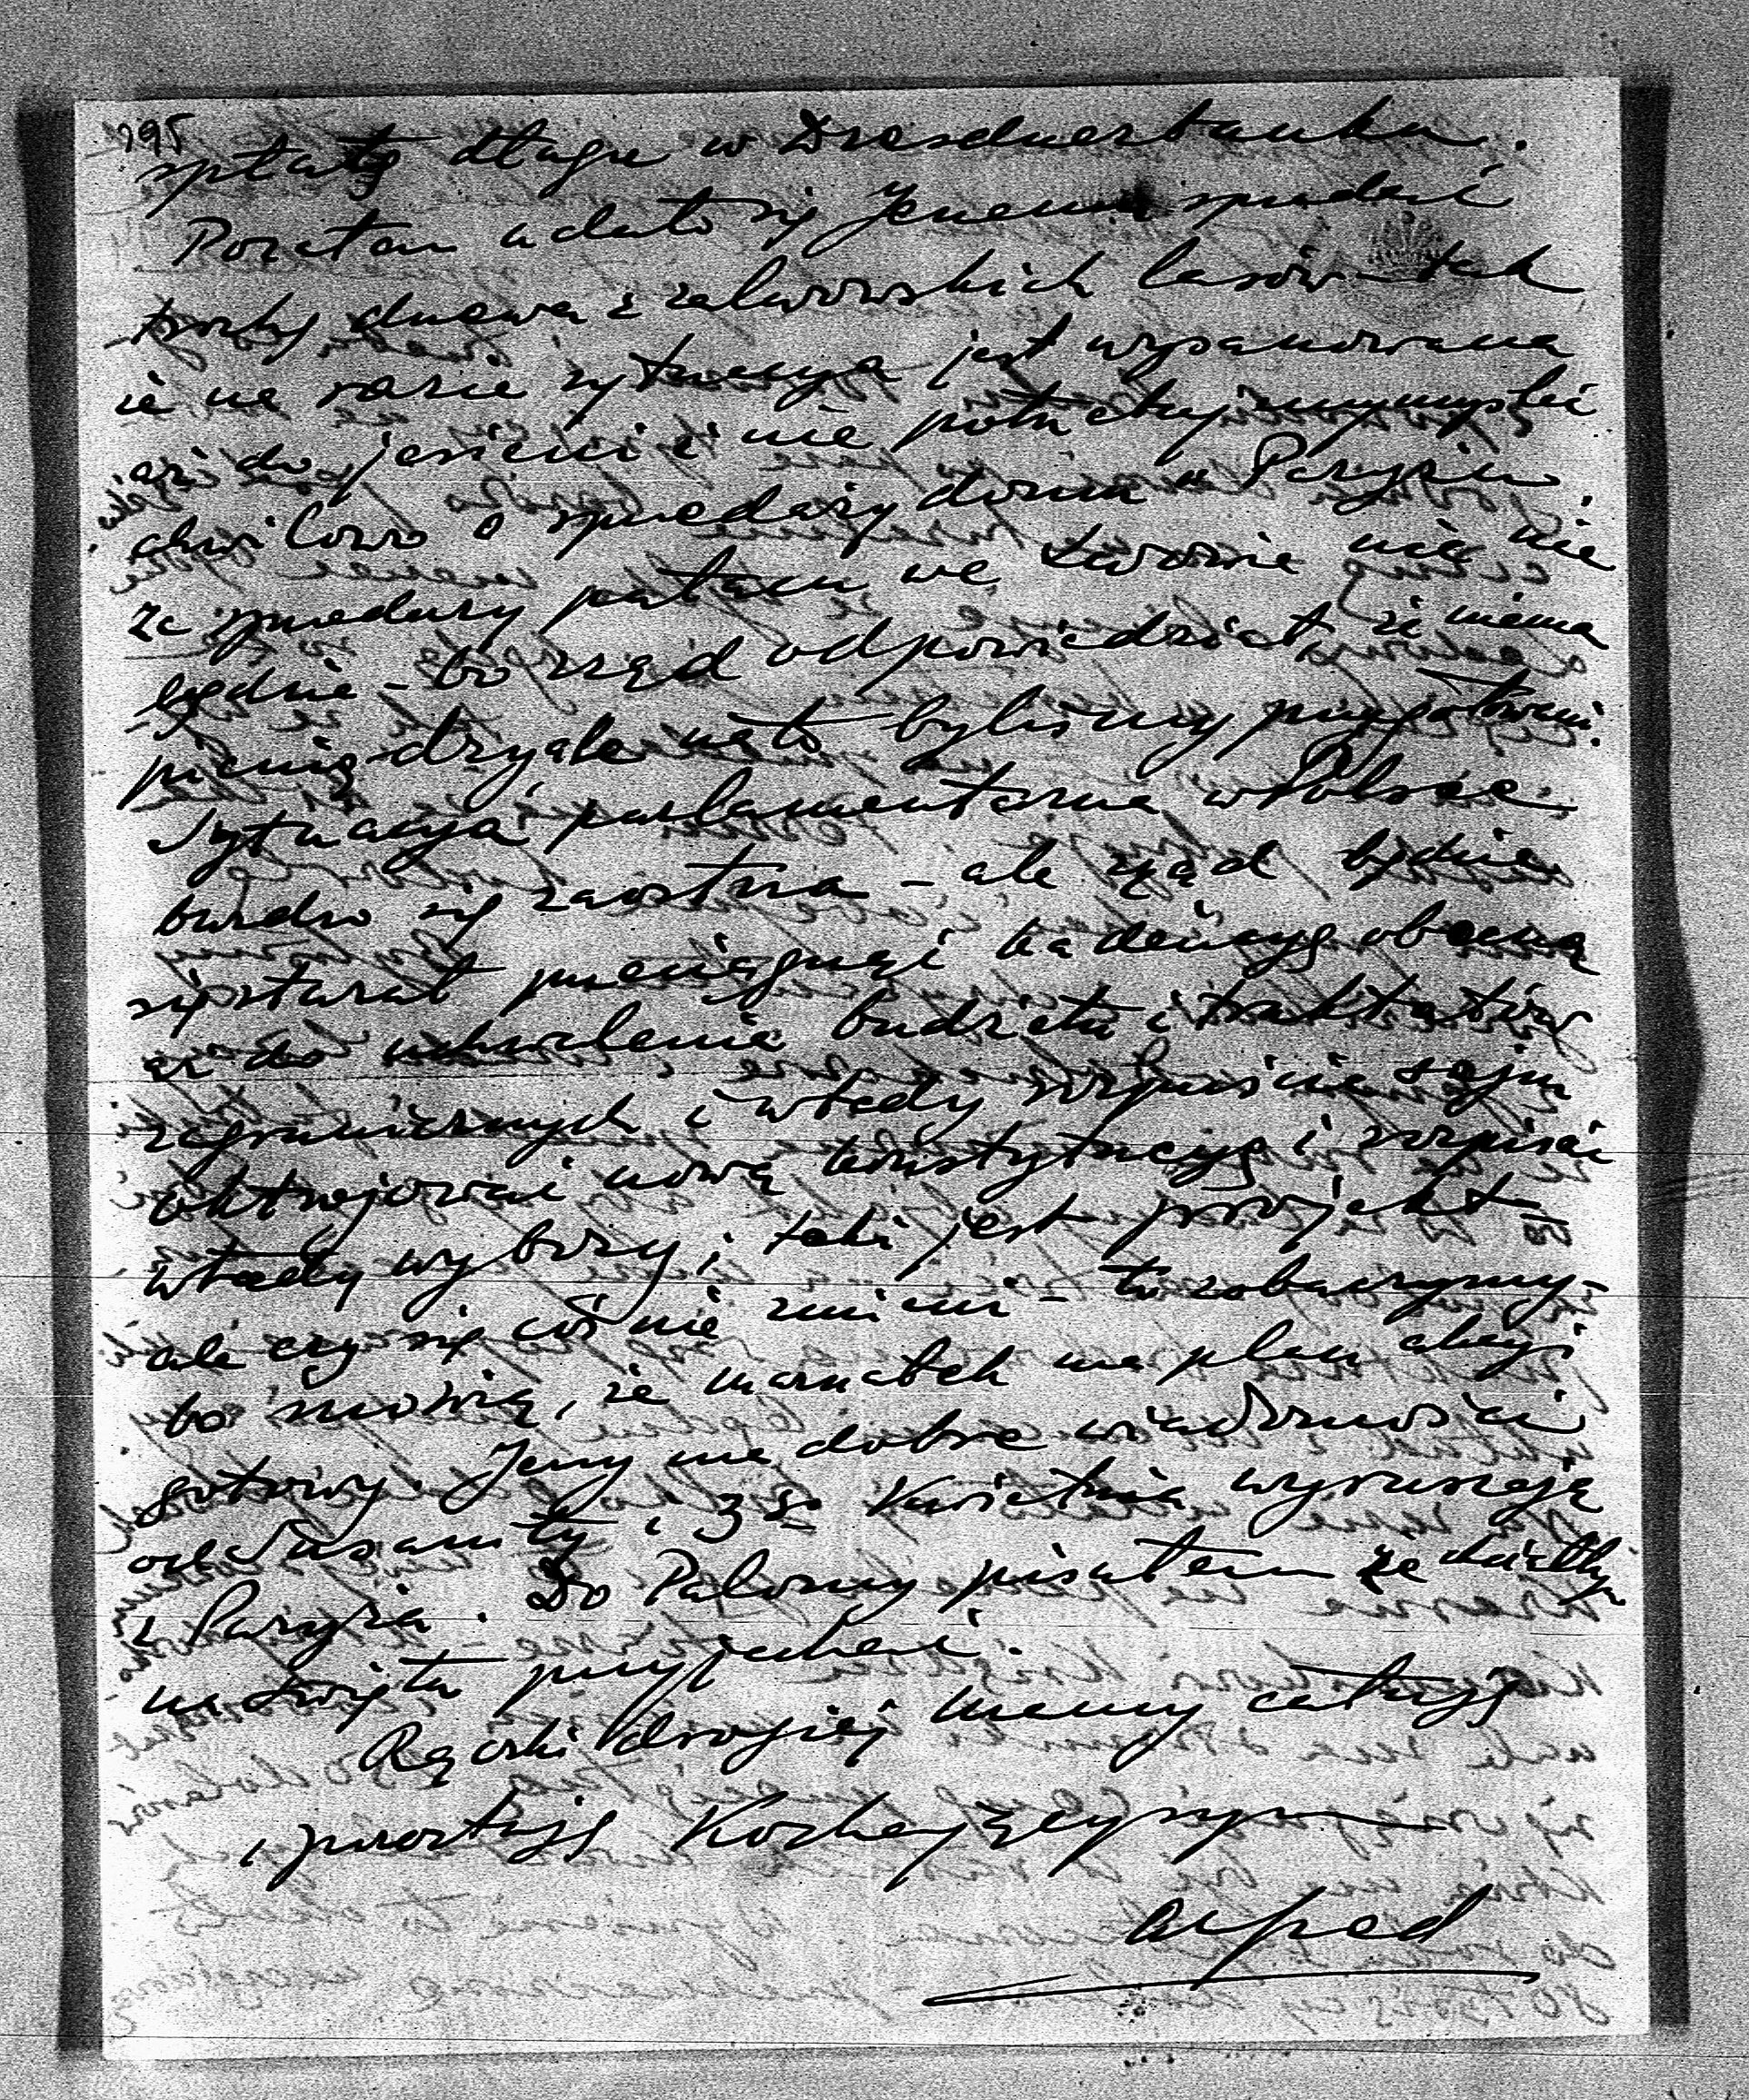 195
spłatę długu w Dresdnerbanku.
Pozatem udało się Jenemu sprzedać
trochę drzewa z zalwowskich lasów tak
że na razie sytuacya jest wysanowana
aż do jesieni i nie potrzeby myśleć
chwilowo o sprzedaży domu w Paryżu.
Ze sprzedaży pałacu we Lwowie nic nie
będzie – bo rząd odpowiedział że niema
pieniędzy, ale na to byliśmy przygotowani.
Sytuacya parlamentarna w Polsce
bardzo się zaostrza – ale rząd będzie
się starał przeciągnąć kadencyę obecną
aż do uchwalenia budżetu i traktatów
zagranicznych i wtedy rozpuścić sejm
oktrojować nową konstytucyę i rozpisać
wtedy wybory; taki jest projekt –
ale czy się coś nie zmieni – to zobaczymy –
bo mówią, że marszałek ma plan
gotowy. Jerzy ma dobre wiadomości
od Susanity i 30 Kwietnia wyruszają
z Paryża. Do Palomy pisałem że
na święta przyjechać.
Rączki drogiej mamy całuję
i pozostaję Kochającym synem
Alfred